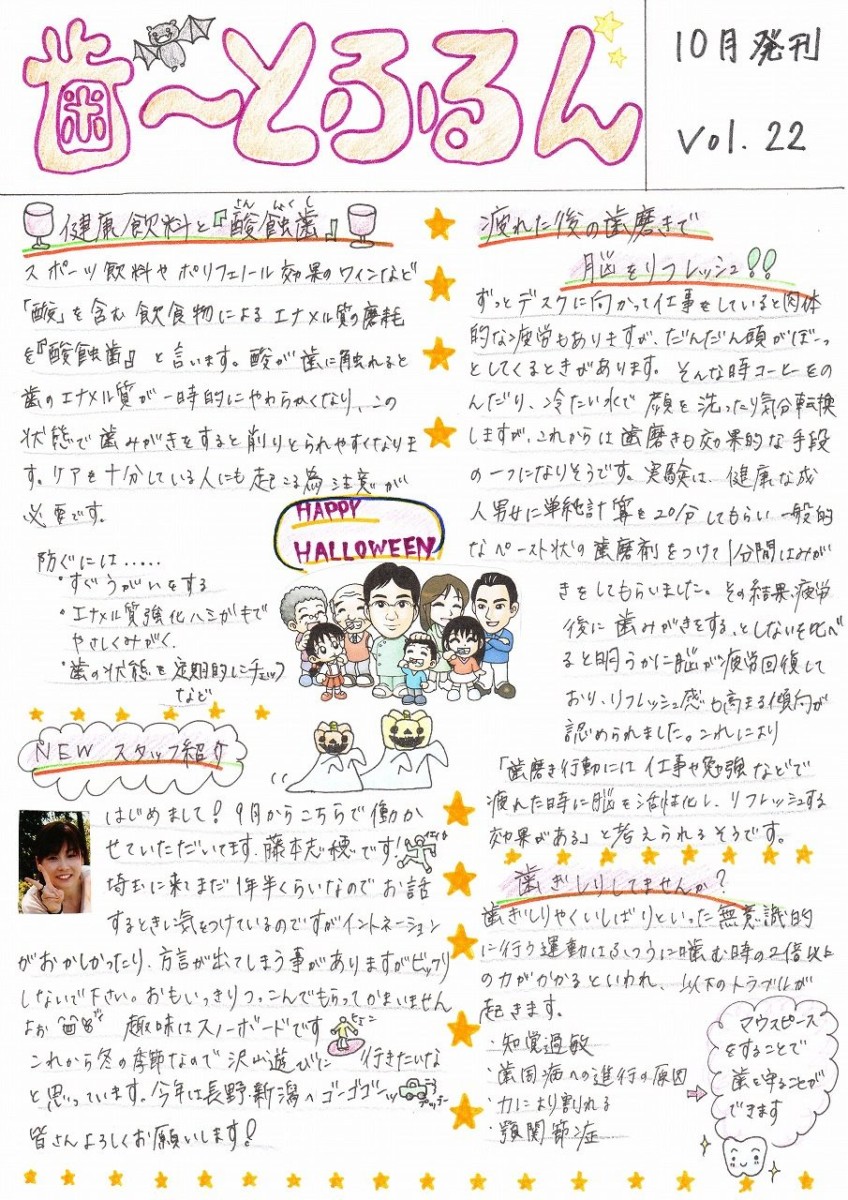 歯〜とふるん
10月発刊
Vol. 22
健康飲料と『酸蝕歯』
さんしょくし
スポーツ飲料やポリフェノール効果のワインなど
「酸」を含む飲食物によるエナメル質の磨耗
を『酸蝕歯』と言います。酸が歯に触れると
歯のエナメル質が一時的にやわらかくなり、この
状態で歯みがきをすると削りとられやすくなりま
す。ケアを十分している人にも起こる為注意が
必要です。
防ぐには.....
・すぐうがいをする
・エナメル質強化ハミガキで
やさしくみがく.
・歯の状態を定期的にチェック
など
HAPPY
HALLOWEEN
NEW スタッフ紹介
はじめまして！9月からこちらで働か
せていただいてます、藤本志穂です！
埼玉に来てまだ1年半くらいなのでお話
するとき気をつけているのですがイントネーション
がおかしかったり、方言が出てしまう事がありますがビックリ
しないで下さい。おもいっきりつっこんでもらってかまいません
よぉ 趣味はスノーボードです
これから冬の季節なので沢山遊びに行きたいな
と思っています。今年は長野・新潟へゴーゴゴーッ
皆さんよろしくお願いします！
疲れた後の歯磨きで
脳をリフレッシュ!!
ずっとデスクに向かって仕事をしていると肉体
的な疲労もありますが、だんだん頭がぼーっ
としてくるときがあります。そんな時コーヒーをの
んだり、冷たい水で顔を洗ったり気分転換
しますが、これからは歯磨きも効果的な手段
の一つになりそうです。実験は、健康な成
人男女に単純計算を20分してもらい一般的
なペースト状の歯磨剤をつけて1分間はみが
きをしてもらいました。その結果、疲労
後に歯みがきをする、としないを比べ
ると明らかに脳が疲労回復して
おり、リフレッシュ感も高まる傾向が
認められました。これにより
「歯磨き行動には仕事や勉強などで
疲れた時に脳を活性化し、リフレッシュする
効果がある」と考えられるそうです。
歯ぎしりしてませんか？
歯ぎしりやくいしばりといった無意識的
に行う運動はふつうに噛む時の2倍以上
の力がかかるといわれ、以下のトラブルが
起きます。
・知覚過敏
・歯周病への進行の原因
・力により割れる
・顎関節症
マウスピース
をすることで
歯を守ることが
できます